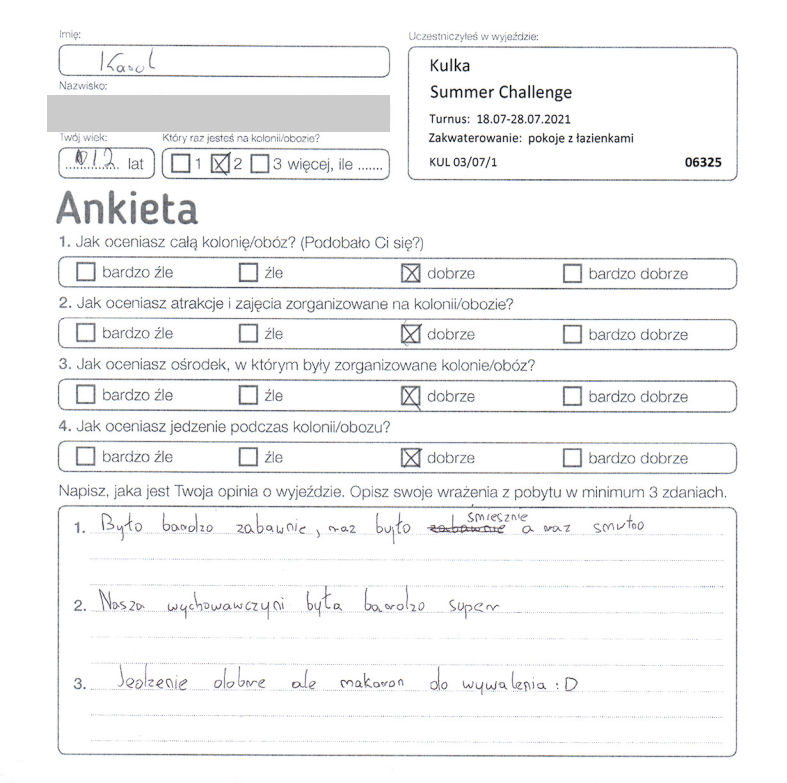 Imię:
Karol
Nazwisko:
Twój wiek:
12 lat
Który raz jesteś na kolonii/obozie?
1 2 3 więcej, ile .......
Uczestniczyłeś w wyjeździe:
Kulka
Summer Challenge
Turnus: 18.07-28.07.2021
Zakwaterowanie: pokoje z łazienkami
KUL 03/07/1 06325
Ankieta
1. Jak oceniasz całą kolonię/obóz? (Podobało Ci się?)
bardzo źle źle dobrze bardzo dobrze
2. Jak oceniasz atrakcje i zajęcia zorganizowane na kolonii/obozie?
bardzo źle źle dobrze bardzo dobrze
3. Jak oceniasz ośrodek, w którym były zorganizowane kolonie/obóz?
bardzo źle źle dobrze bardzo dobrze
4. Jak oceniasz jedzenie podczas kolonii/obozu?
bardzo źle źle dobrze bardzo dobrze
Napisz, jaka jest Twoja opinia o wyjeździe. Opisz swoje wrażenia z pobytu w minimum 3 zdaniach.
1. Było bardzo zabawnie, raz było zabawnie śmiesznie a raz smutno
2. Nasza wychowawczyni była bardzo super
3. Jedzenie dobre ale makaron do wywalenia :D